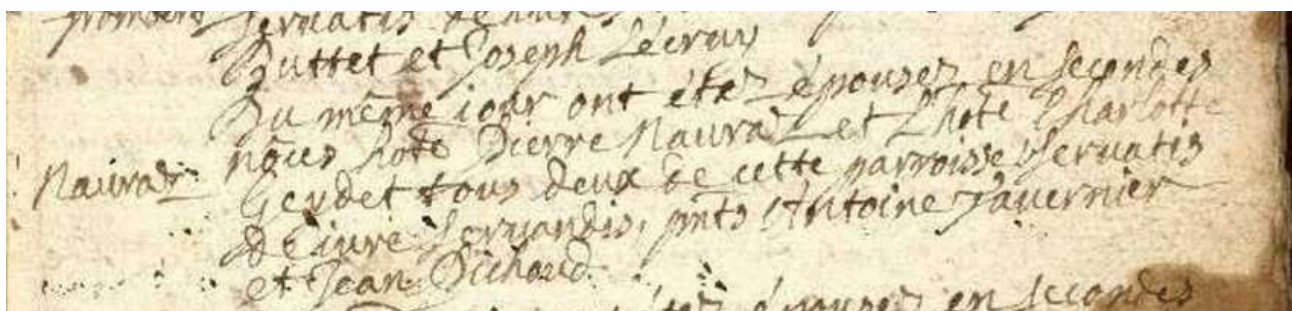 servatis de iure
Buttet et Joseph Lécruy
Du même iour ont étez épousez en secondes
nôces hôte Pierre Nauraz et L'hôte Charlotte
Nauraz
Gerdet tous deux de cette parroisse servatis
de iure servandis, pnts Antoine Tavernier
et Jean Pichoud
étez épousez en secondes